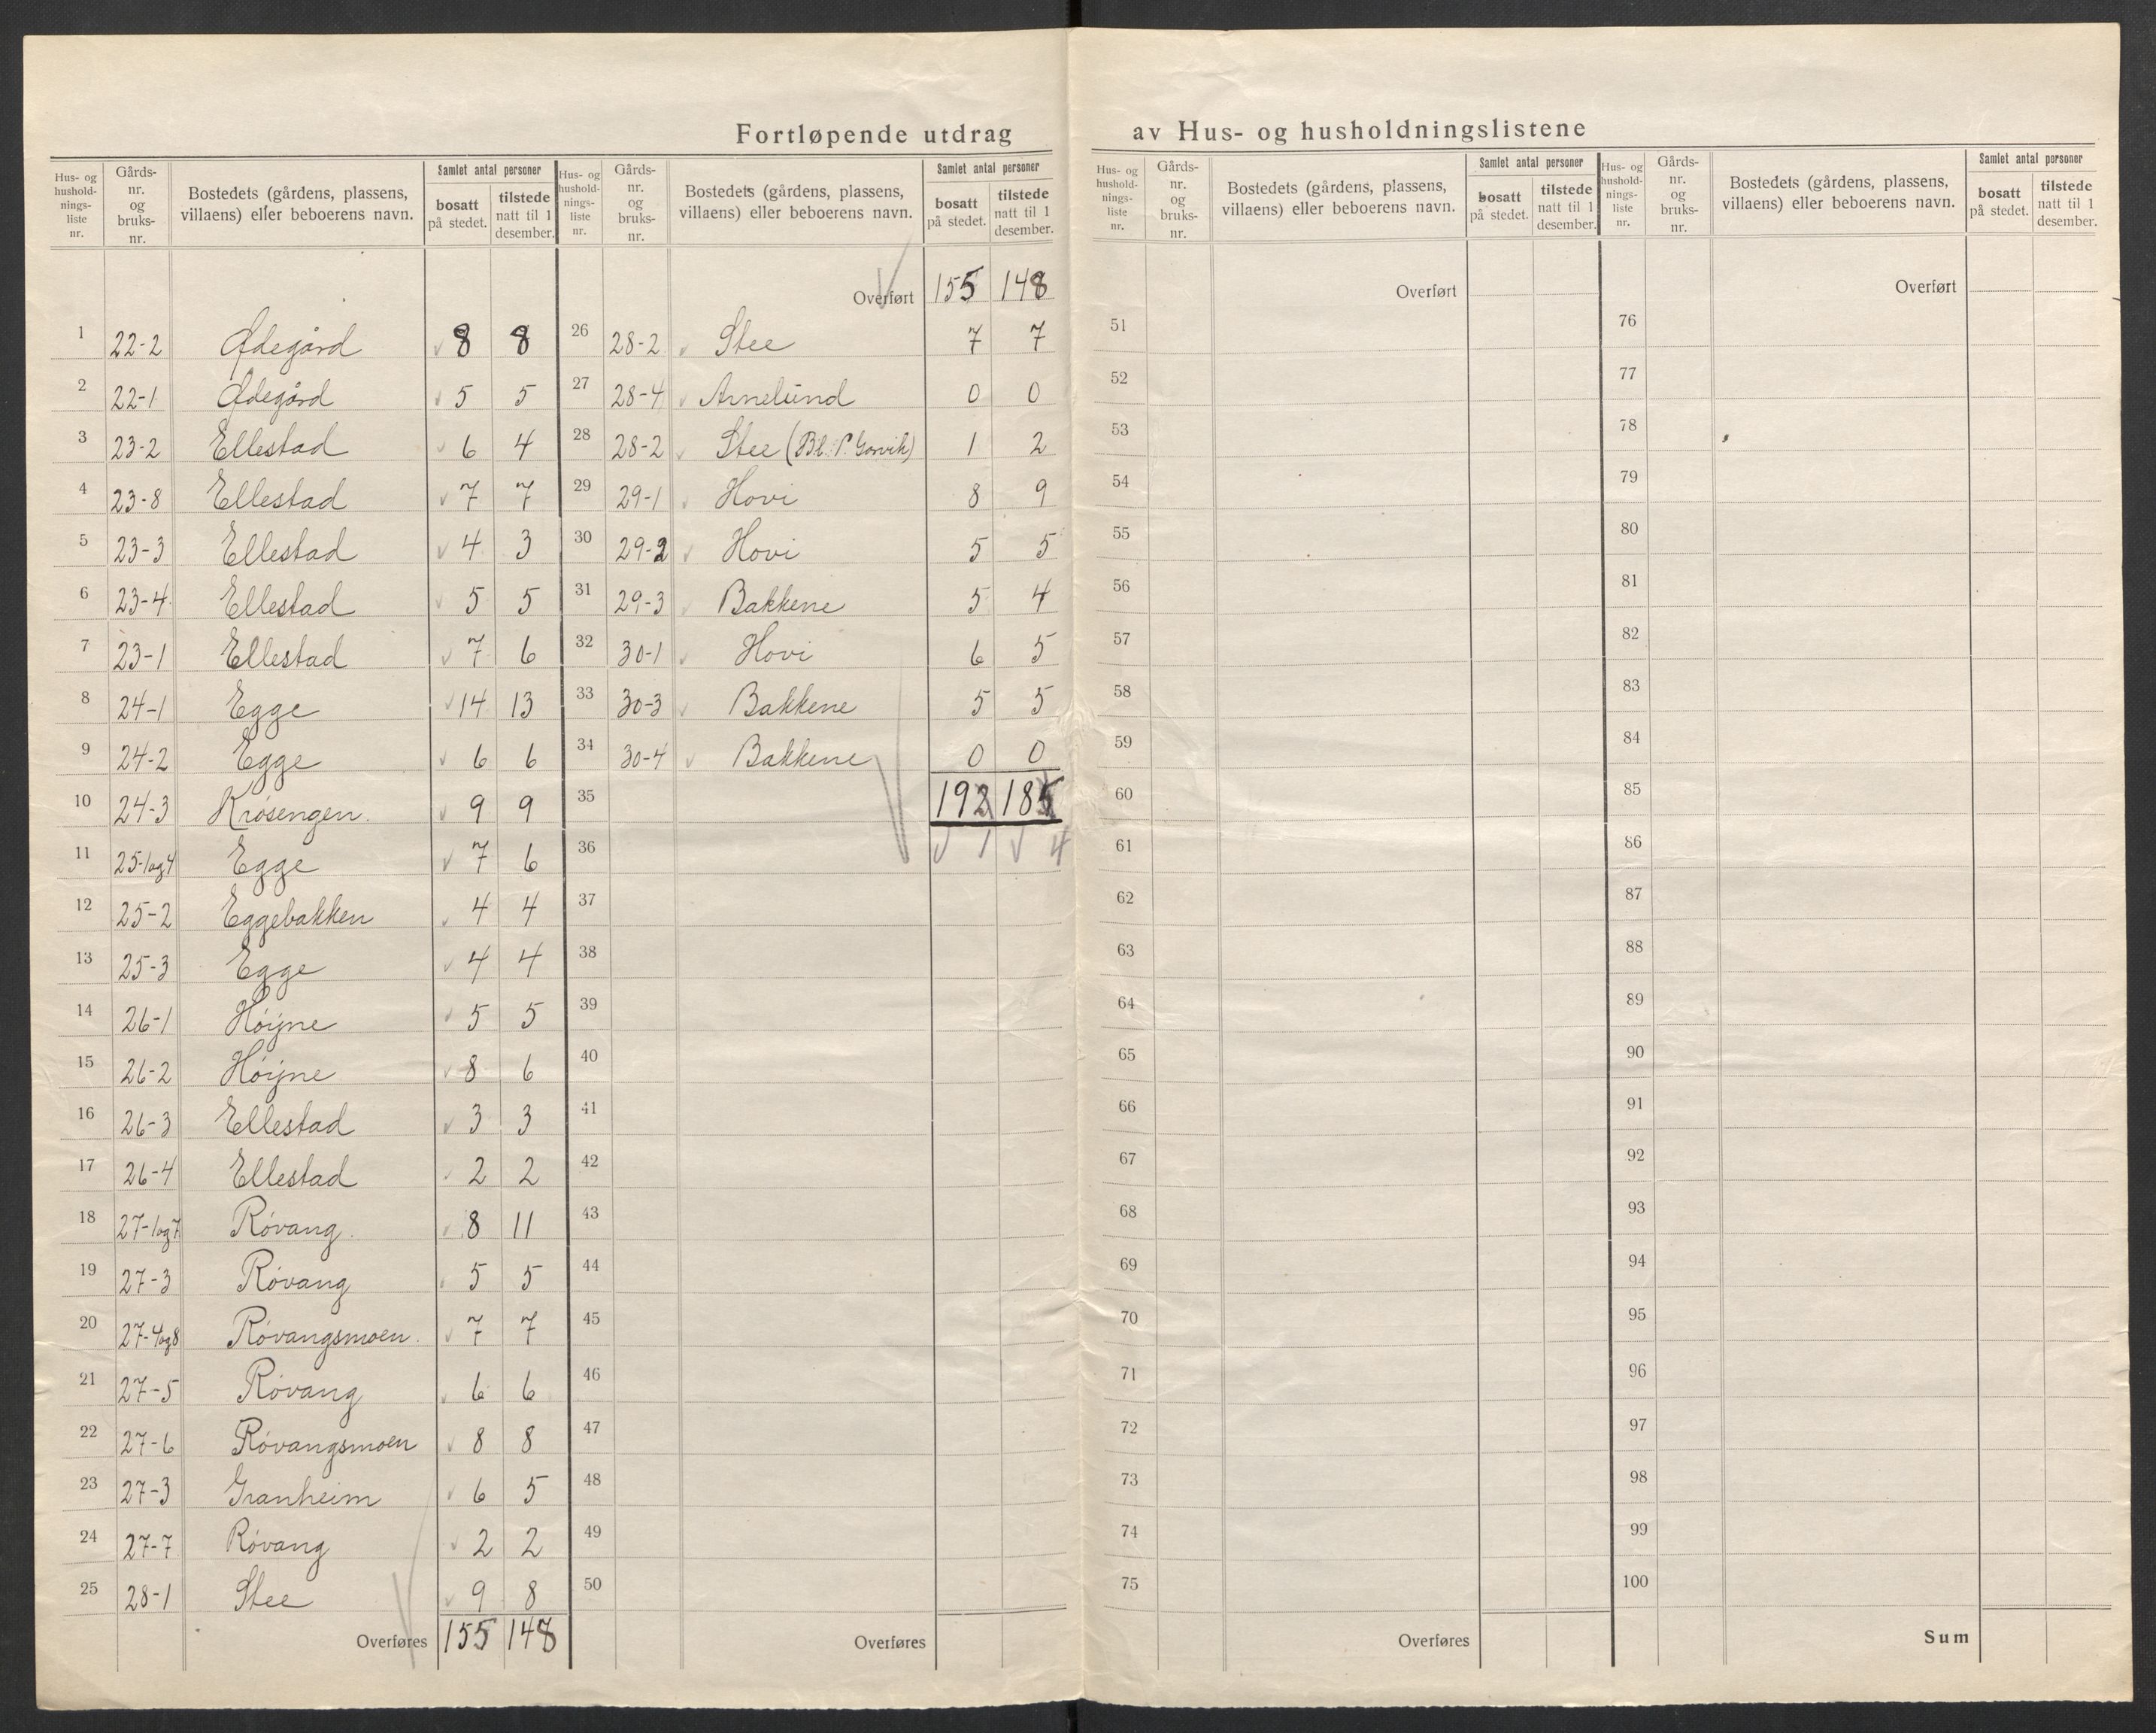 Fortløpende utdrag av Hus- og husholdningslistene
Hus- og husholdningsliste nr. | Gårdsnr. og bruksnr. | Bostedets (gårdens, plassens, villaens) eller beboerens navn. | Samlet antal personer | bosatt på stedet. | tilstede natt til 1 desember.
1 22-2 Ødegård 8 8
2 22-1 Ødegård 5 5
3 23-2 Ellestad 6 4
4 23-8 Ellestad 7 7
5 23-3 Ellestad 4 3
6 23-4 Ellestad 5 5
7 23-1 Ellestad 7 6
8 24-1 Egge 14 13
9 24-2 Egge 6 6
10 24-3 Krøsengen 9 9
11 25-1og4 Egge 7 6
12 25-2 Eggebakken 4 4
13 25-3 Egge 4 4
14 26-1 Høijne 5 5
15 26-2 Høijne 8 6
16 26-3 Ellestad 3 3
17 26-4 Ellestad 2 2
18 27-1og7 Røvang 8 11
19 27-3 Røvang 5 5
20 27-4og8 Røvangsmoen 7 7
21 27-5 Røvang 6 6
22 27-6 Røvangsmoen 8 8
23 27-3 Granheim 6 5
24 27-7 Røvang 2 2
25 28-1 Stee 9 8
Overføres 155 148
Hus- og husholdningsliste nr. | Gårdsnr. og bruksnr. | Bostedets (gårdens, plassens, villaens) eller beboerens navn. | Samlet antal personer | bosatt på stedet. | tilstede natt til 1 desember.
Overført 155 148
26 28-2 Stee 7 7
27 28-4 Arnelund 0 0
28 28-2 Stee 1 2
29 29-1 Hovi 8 9
30 29-2 Hovi 5 5
31 29-3 Bakkene 5 4
32 30-1 Hovi 6 5
33 30-3 Bakkene 5 5
34 30-4 Bakkene 0 0
35 192 185
36 1 4
37
38
39
40
41
42
43
44
45
46
47
48
49
50
Overføres
Hus- og husholdningsliste nr. | Gårdsnr. og bruksnr. | Bostedets (gårdens, plassens, villaens) eller beboerens navn. | Samlet antal personer | bosatt på stedet. | tilstede natt til 1 desember.
Overført
51
52
53
54
55
56
57
58
59
60
61
62
63
64
65
66
67
68
69
70
71
72
73
74
75
Overføres
Hus- og husholdningsliste nr. | Gårdsnr. og bruksnr. | Bostedets (gårdens, plassens, villaens) eller beboerens navn. | Samlet antal personer | bosatt på stedet. | tilstede natt til 1 desember.
Overført
76
77
78
79
80
81
82
83
84
85
86
87
88
89
90
91
92
93
94
95
96
97
98
99
100
Sum